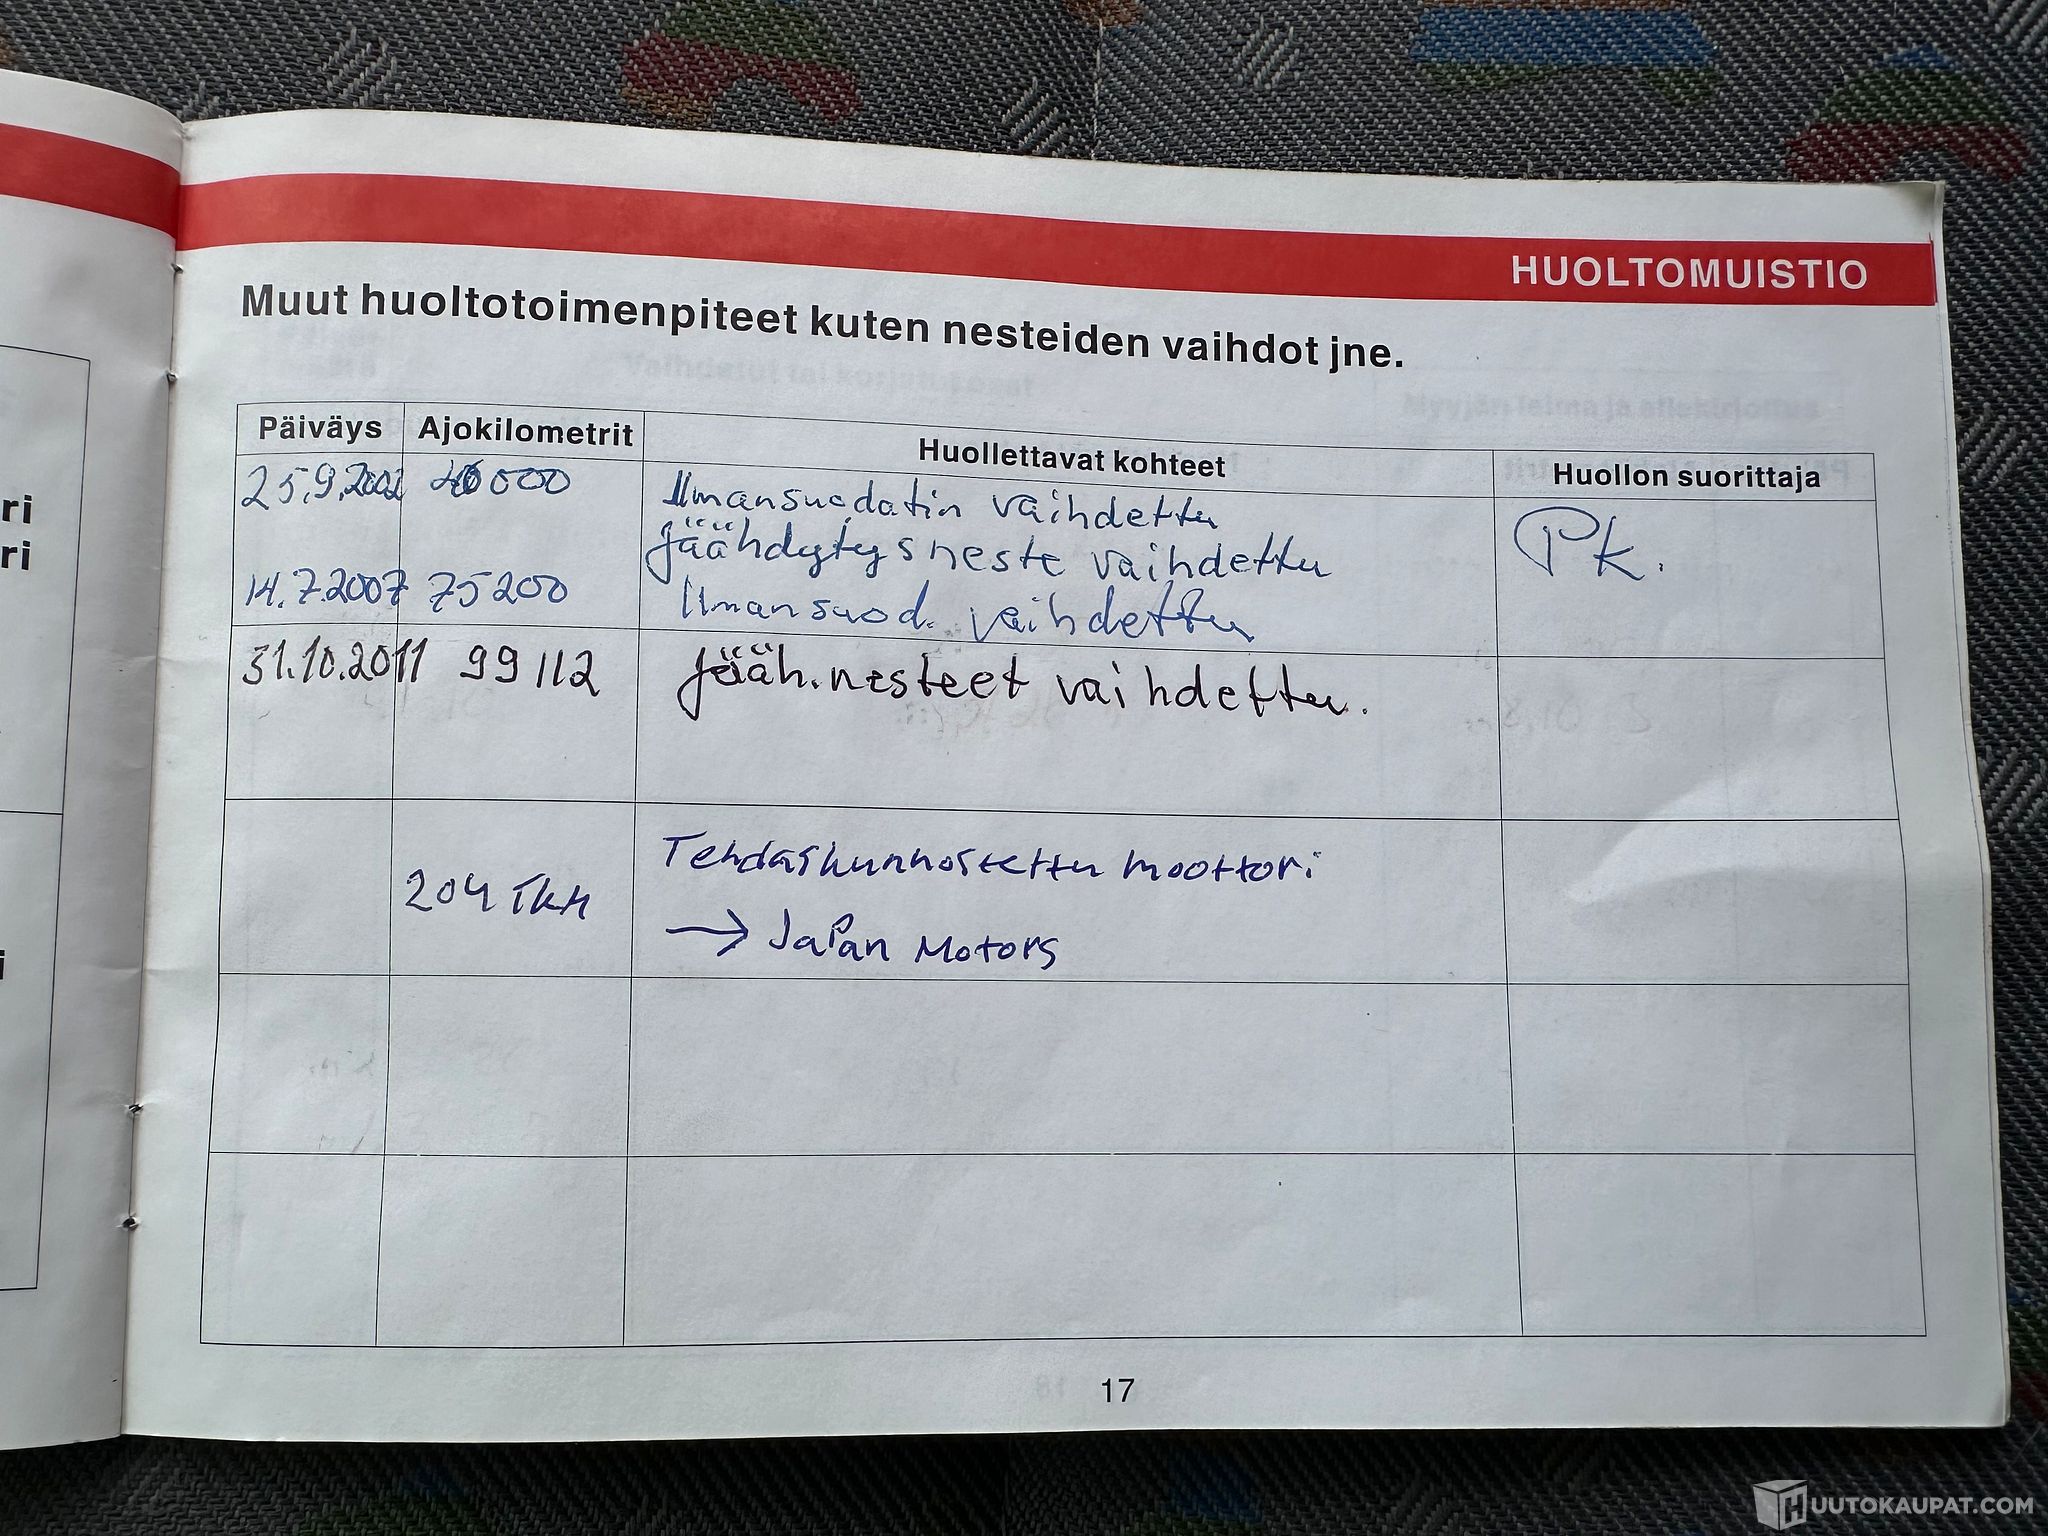 HUOLTOMUISTIO
Muut huoltotoimenpiteet kuten nesteiden vaihdot jne.
Päiväys Ajokilometrit Huollettavat kohteet Huollon suorittaja
25.9.2002 000 Ilmansuodatin vaihdettu Pk.
Jäähdytysneste vaihdettu
14.7.2007 75200 Ilmansuod. vaihdettu
31.10.2011 99112 Jääh.nesteet vaihdettu.
204 Tkm Tehdaskunnostettu moottori
→ Japan Motors
17
ri
ri
i
HUUTOKAUPAT.COM